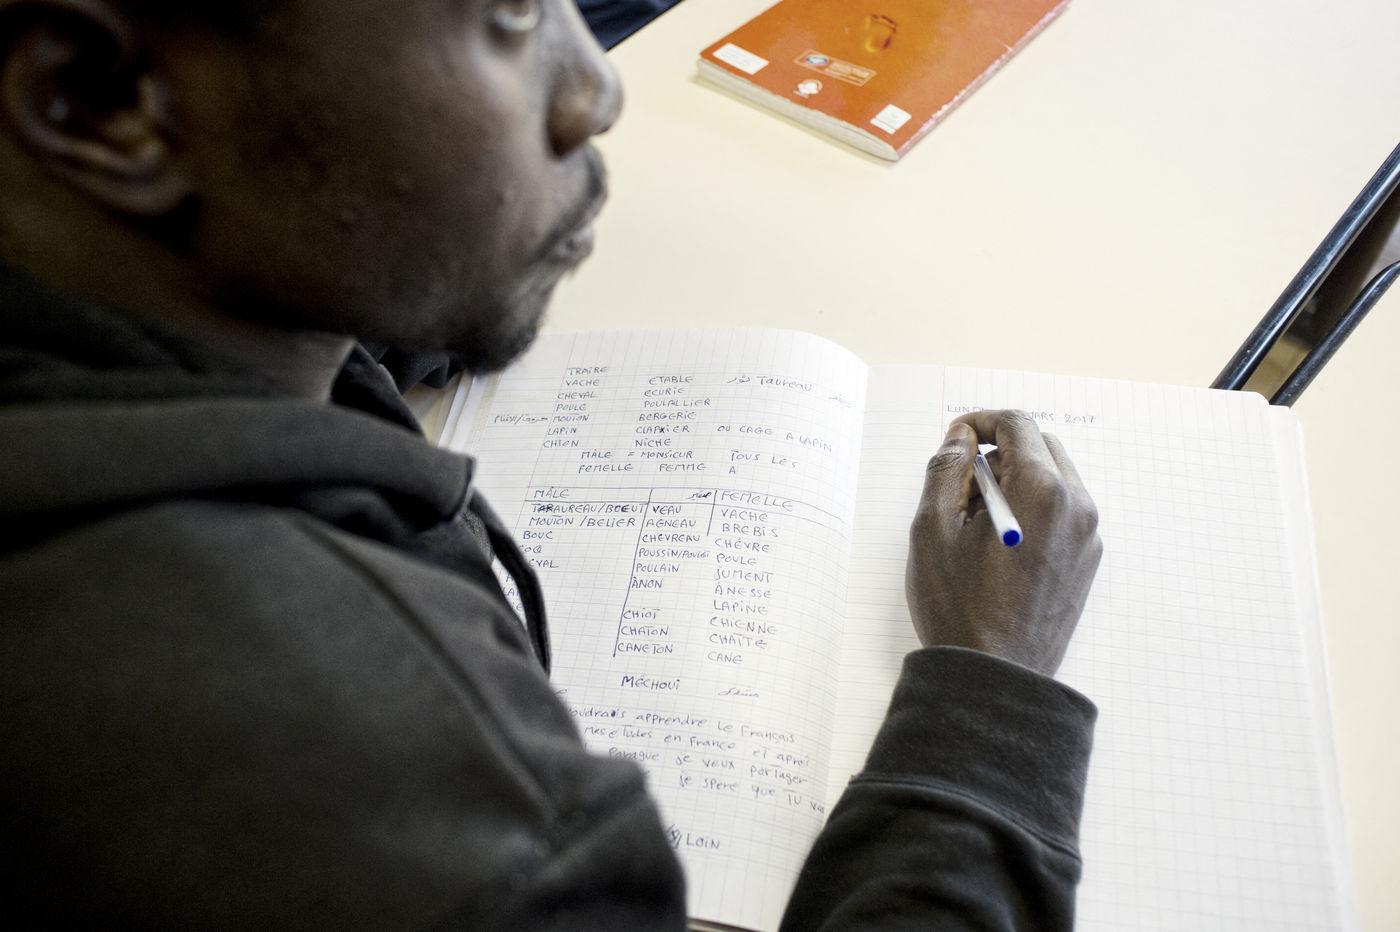 TRAIRE
VACHE ETABLE ثور Taureau
CHEVAL ECURIE
POULE POULAILLIER
MOUTON BERGERIE
LAPIN CLAPIER OU CAGE A LAPIN
CHIEN NICHE
MÂLE = MONSIEUR TOUS LES
FEMELLE FEMME A
MÂLE FEMELLE
TAUREAU/BOEUT VEAU VACHE
MOUTON /BELIER AGNEAU BREBIS
BOUC CHEVREAU CHÈVRE
POUSSIN/ POULE
POULAIN JUMENT
ÂNON ÂNESSE
LAPINE
CHIOT CHIENNE
CHATON CHATTE
CANETON CANE
MÉCHOUI
voudrais apprendre le Français
mes etudes en France et après
je veux partager
je spere que TU
LOIN
LUNDI MARS 2017